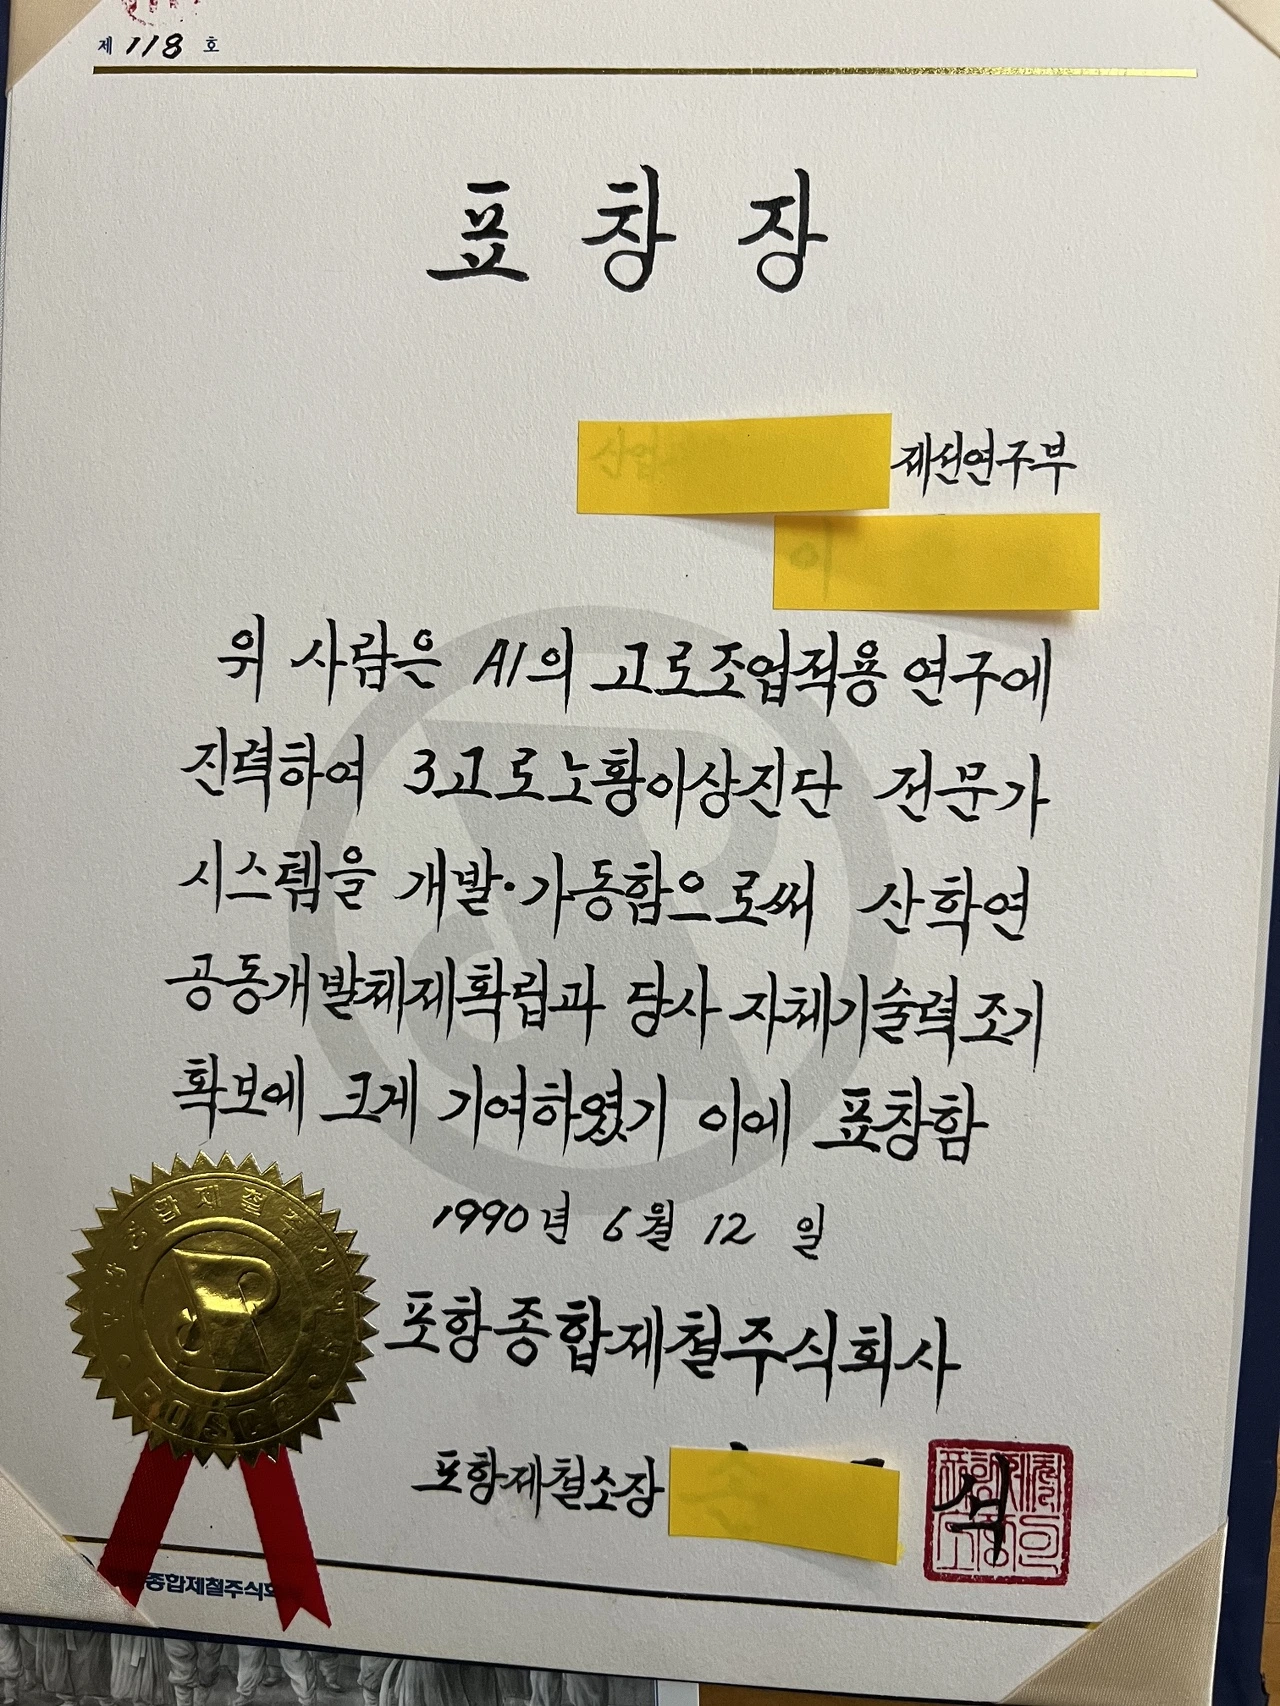 제 118 호
표 창 장
제선연구부
위 사람은 AI의 고로조업적용 연구에
진력하여 3고로노황이상진단 전문가
시스템을 개발·가동함으로써 산학연
공동개발체제확립과 당사 자체기술력조기
확보에 크게 기여하였기 이에 표창함
1990년 6월 12일
포항종합제철주식회사
포항제철소장 석
종합제철주식회